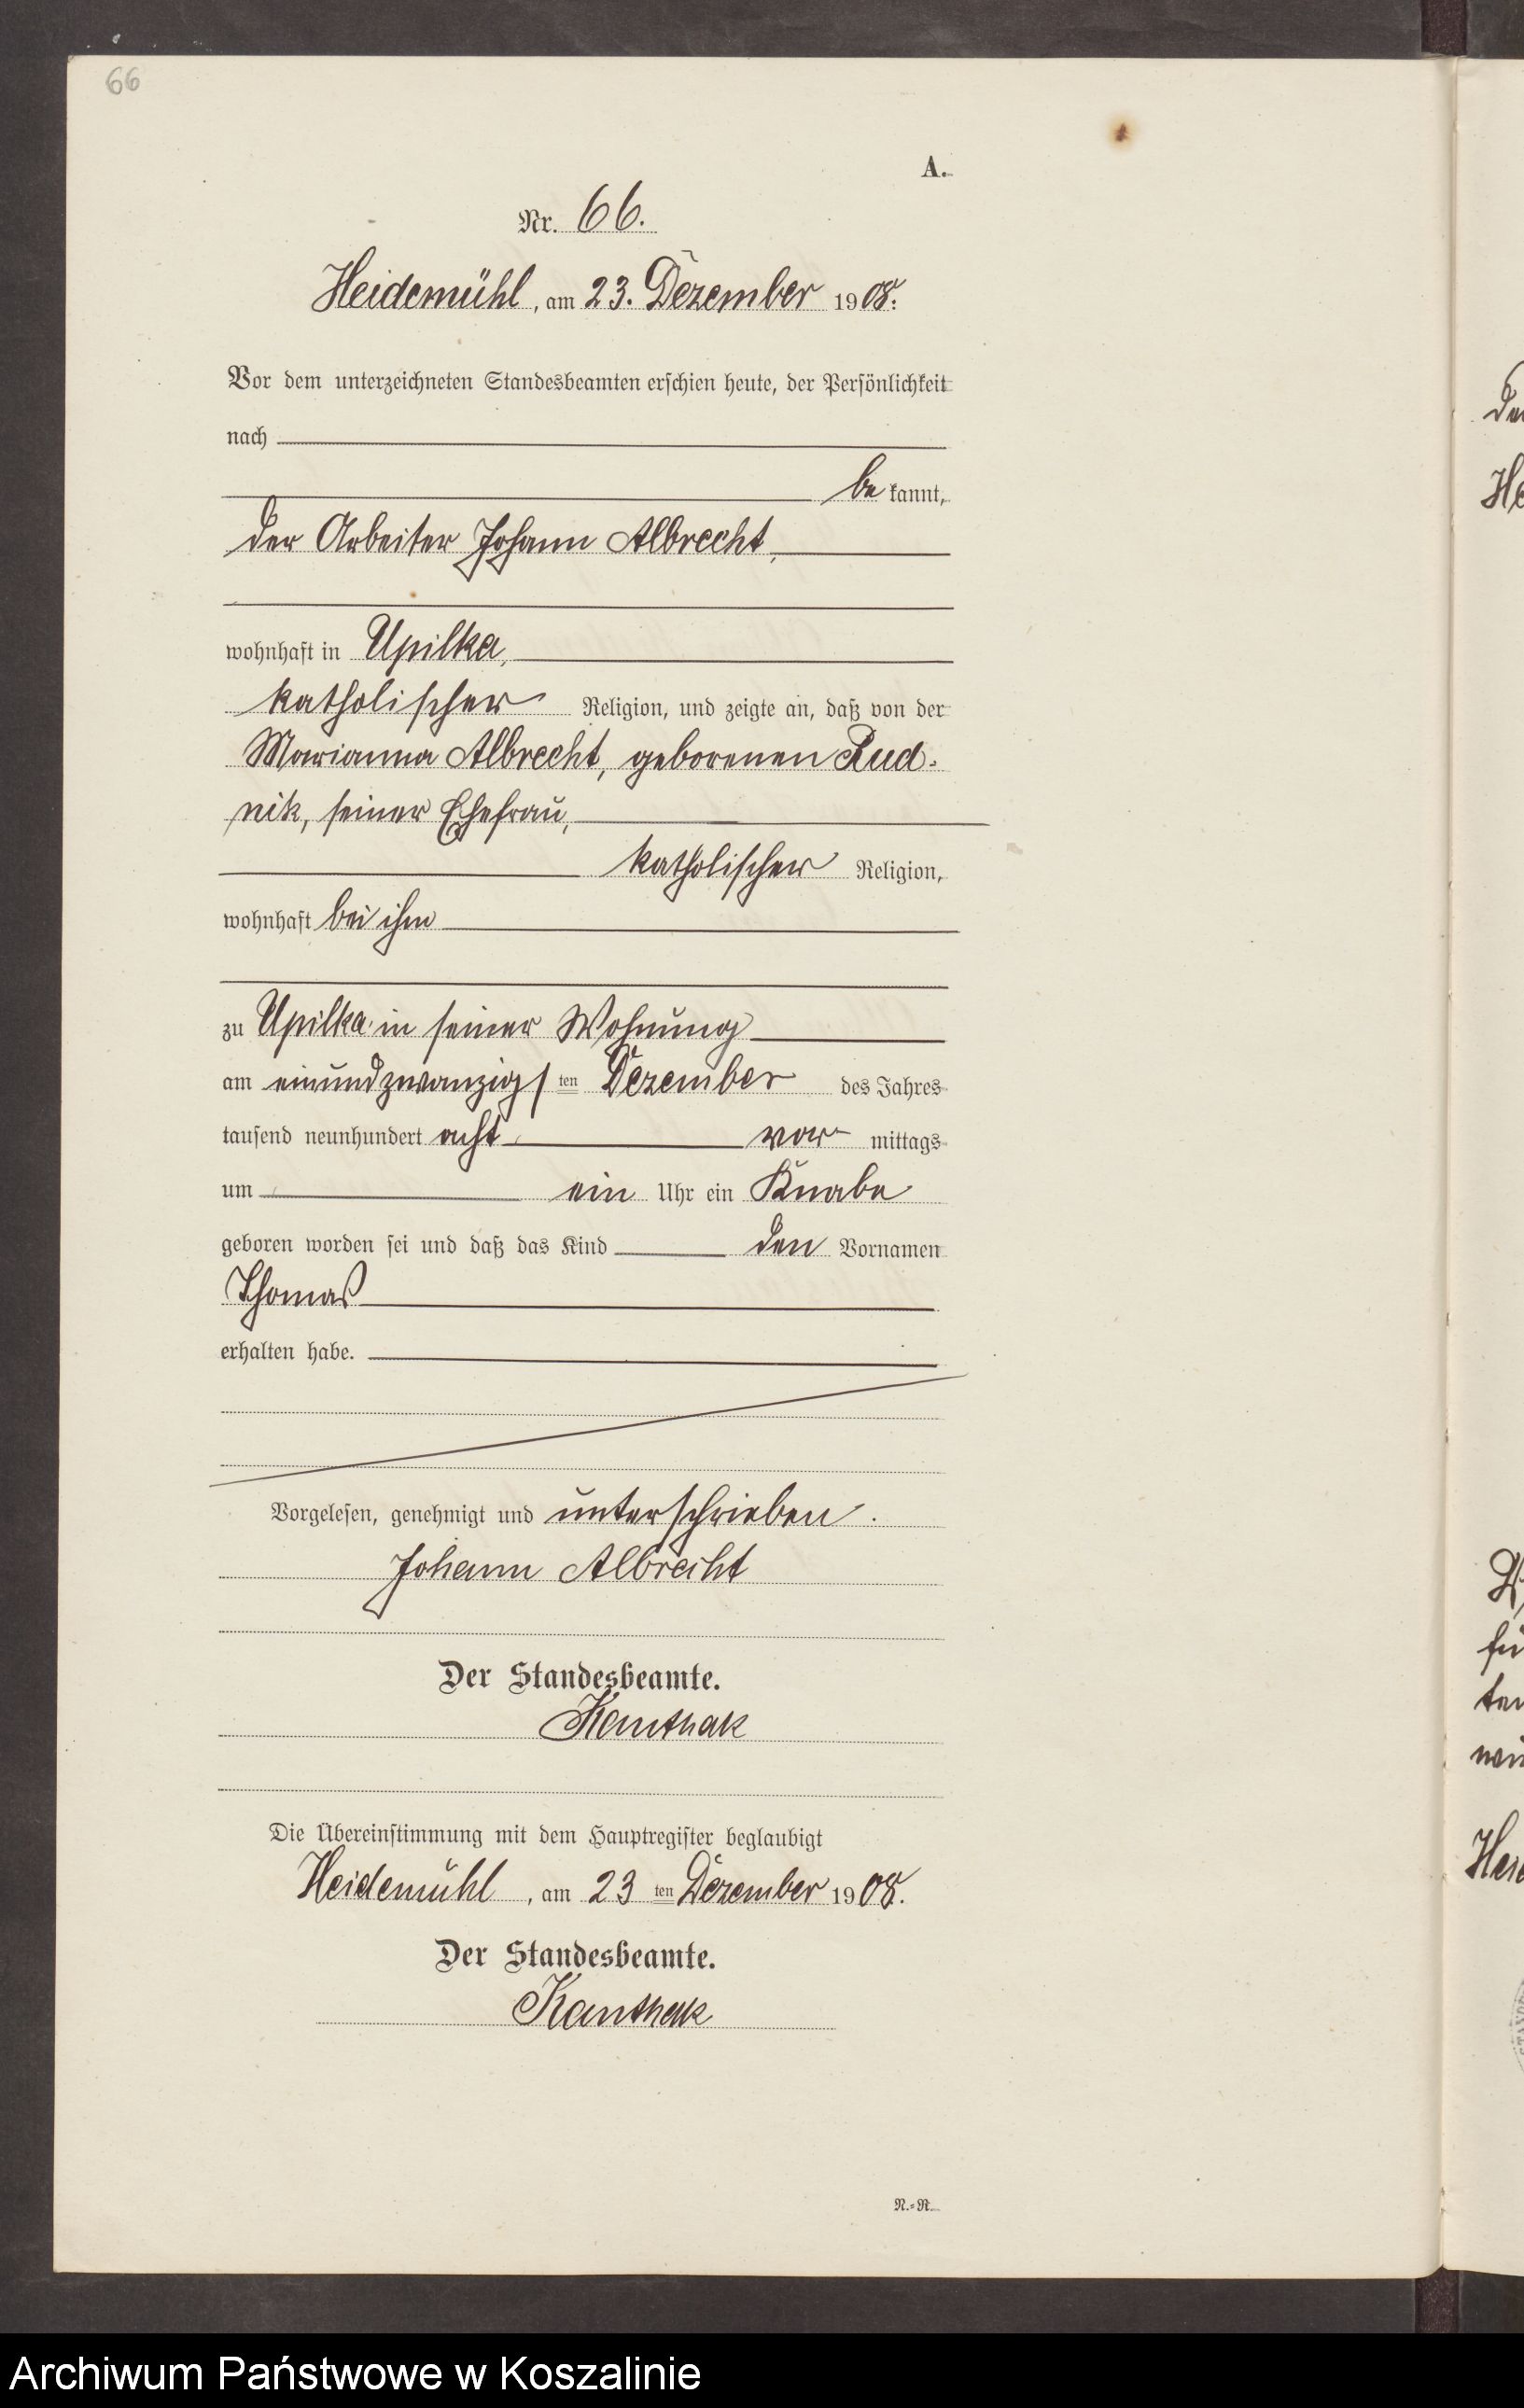 66
A.
Nr. 66.
Heidemühl, am 23. Dezember 1908.
Vor dem unterzeichneten Standesbeamten erschien heute, der Persönlichkeit
nach
be kannt,
der Arbeiter Johann Albrecht,
wohnhaft in Upilka,
katholischer Religion, und zeigte an, daß von der
Marianna Albrecht, geborenen Rud-
nik, seiner Ehefrau,
katholischer Religion,
wohnhaft bei ihm
zu Upilka in seiner Wohnung
am einundzwanzigsten Dezember des Jahres
tausend neunhundert acht vor mittags
um ein Uhr ein Knabe
geboren worden sei und daß das Kind den Vornamen
Thomas
erhalten habe.
Vorgelesen, genehmigt und unterschrieben.
Johann Albrecht
Der Standesbeamte.
Kanthak
Die Übereinstimmung mit dem Hauptregister beglaubigt
Heidemühl, am 23 ten Dezember 1908.
Der Standesbeamte.
Kanthak
N.-R.
Archiwum Państwowe w Koszalinie